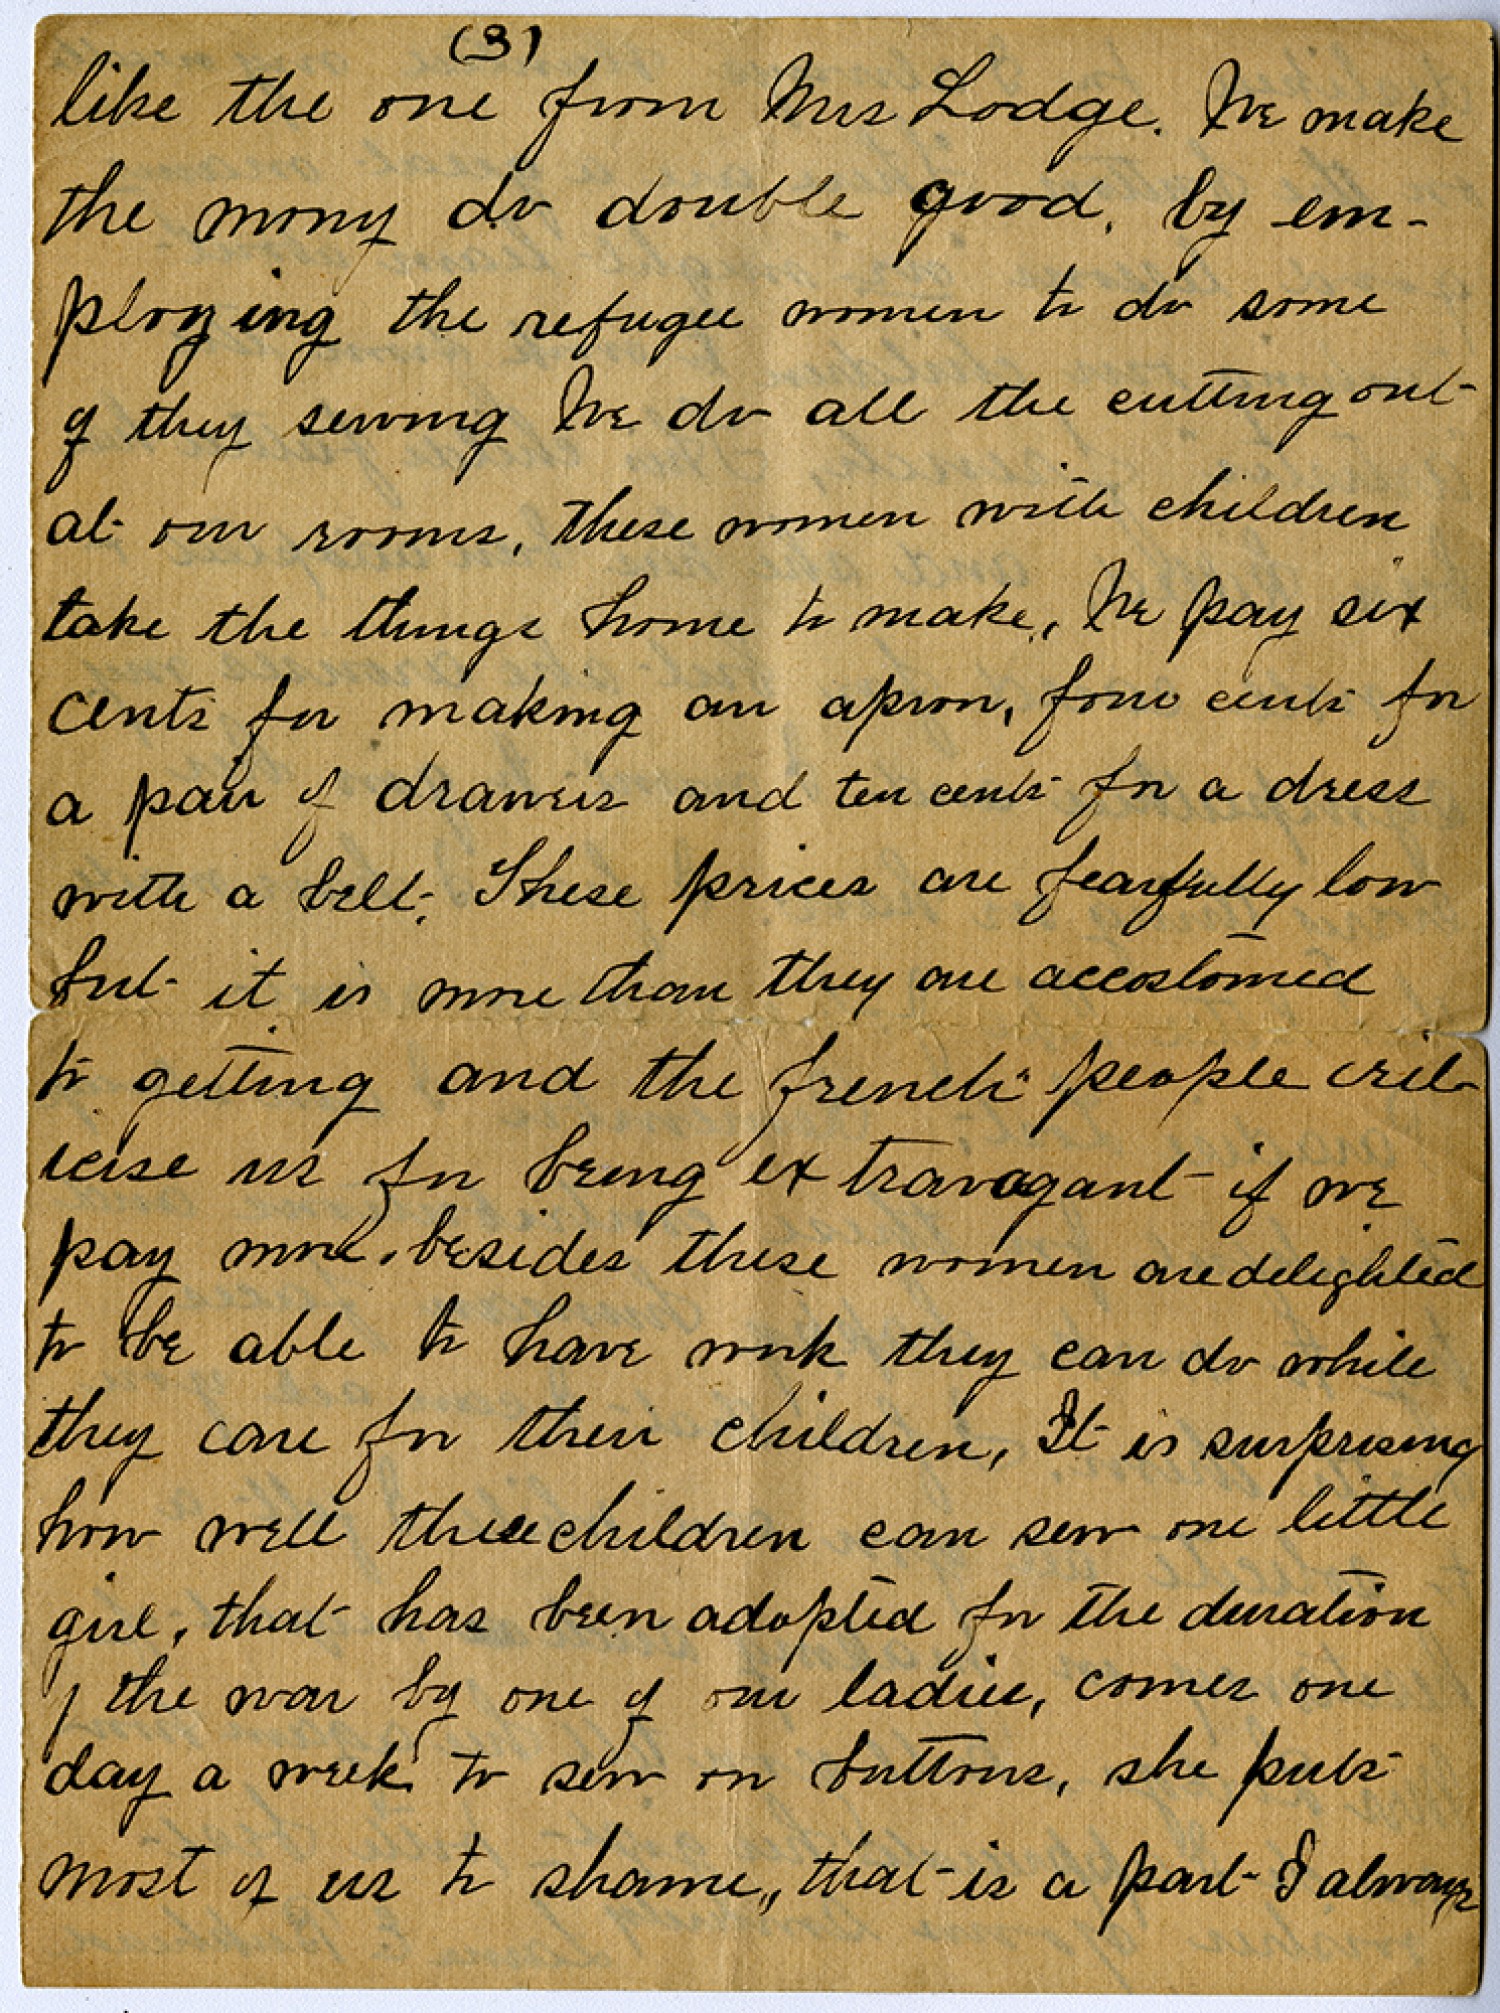 (3)
like the one from Mrs Lodge. We make
the mony do double good, by em-
ploying the refugee women to do some
of they sewing We do all the cutting out
at our rooms, these women with children
take the things home to make, We pay six
cents for making an apron, four cents for
a pair of drawers and ten cents for a dress
with a belt. These prices are fearfully low
but it is more than they are accostomed
to getting and the french people crit-
icise us for being extravagant if we
pay more, besides these women are delighted
to be able to have work they can do while
they care for their children, It is surprising
how well these children can sew one little
girl, that has been adopted for the duration
of the war by one of our ladies, comes one
day a week to sew on buttons, she puts
most of us to shame, that is a part I always